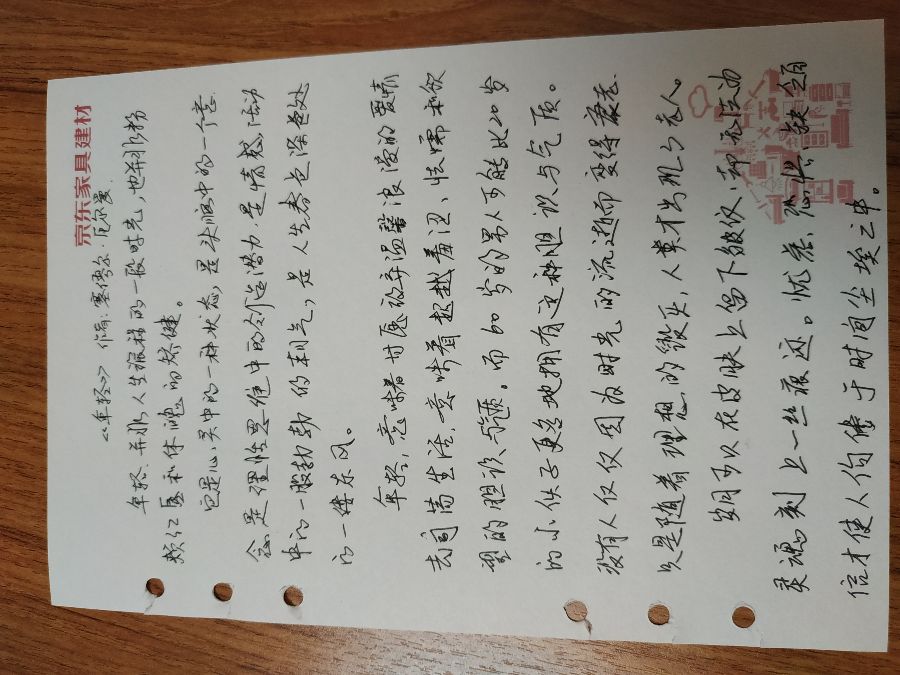 京东家具建材
《年轻》 作者:塞缪尔·厄尔曼
年轻,并非人生旅程的一段时光,也并非粉
颊红唇和体魄的矫健。
它是心灵中的一种状态,是头脑中的一个意
念,是理性思维中的创造潜力,是情感活动
中的一股勃勃的朝气,是人生春色深处
的一缕东风。
年轻,意味着甘愿放弃温馨浪漫的爱情
去闯荡生活,意味着超越羞涩、怯懦和欲
望的胆识与气质。而60岁的男人可能比20岁
的小伙子更多地拥有这种胆识与气质。
没有人仅仅因为时光的流逝而变得衰老,
只是随着理想的毁灭,人类才出现了老人。
岁月可以在皮肤上留下皱纹,却无法为
灵魂刻上一丝痕迹。忧虑、恐惧、缺乏自
信才使人佝偻于时间尘埃之中。